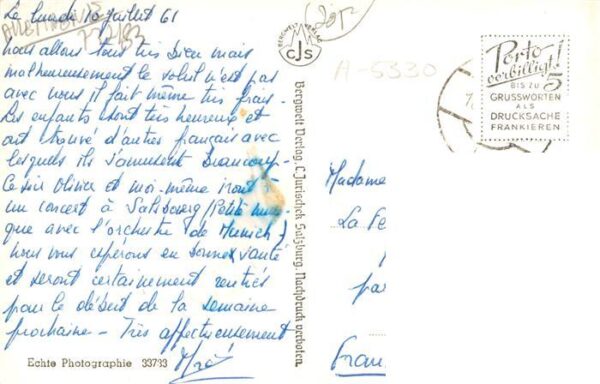 Le lundi 10 juillet 61
nous allons tous très bien mais
malheureusement le soleil n'est pas
avec nous il fait même très frais.
Les enfants sont très heureux et
ont trouvé d'autres français avec
lesquels ils s'amusent beaucoup.
Ce soir Olivier et moi-même irons à
un concert à Salzbourg (Petite mu
que avec l'orchestre de Munich)
nous vous espérons en bonne santé
et serons certainement rentrés
pour le début de la semaine
prochaine - Très affectueusement
Echte Photographie 33733
BERGWELT VERLAG
CJS
Bergwelt Verlag, C. Jurischek Salzburg. Nachdruck verboten.
A-5330
Porto
verbilligt!
BIS ZU 5
GRUSSWORTEN
ALS
DRUCKSACHE
FRANKIEREN
Madame
La Fe
pa
Fran